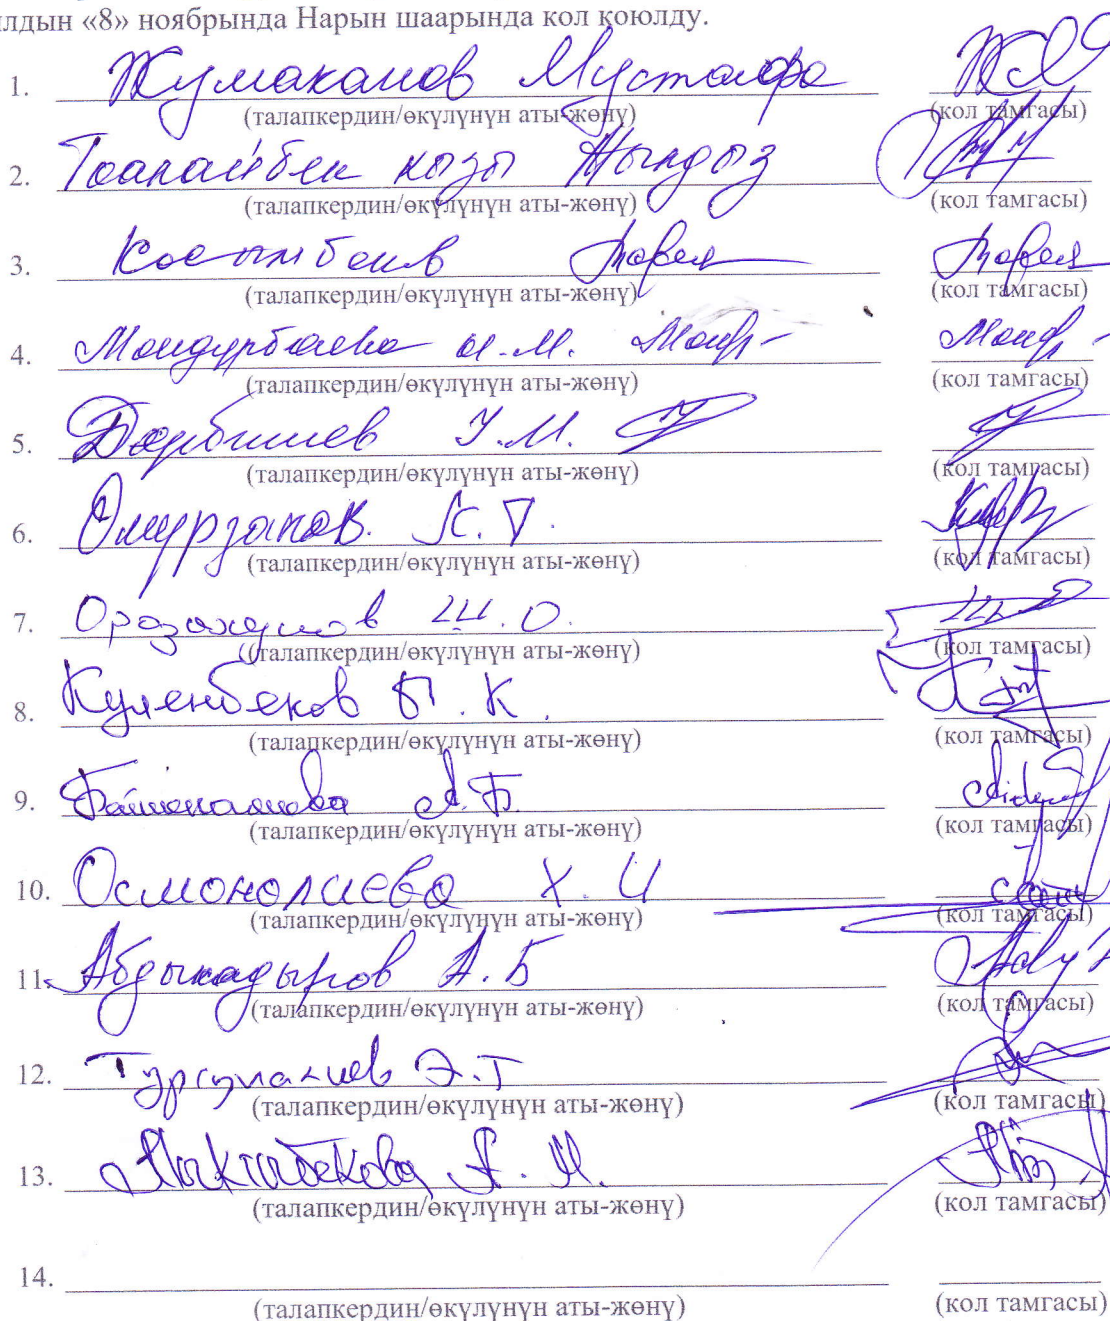 лдын «8» ноябрында Нарын шаарында кол коюлду.
1. Жумаканов Мустафа
(талапкердин/өкүлүнүн аты-жөнү) (кол тамгасы)
2. Тоалайбек кызы Жылдыз
(талапкердин/өкүлүнүн аты-жөнү) (кол тамгасы)
3. Касымбеив
(талапкердин/өкүлүнүн аты-жөнү) (кол тамгасы)
4. Мондурбаева
(талапкердин/өкүлүнүн аты-жөнү) (кол тамгасы)
5. Дарбишев У.М.
(талапкердин/өкүлүнүн аты-жөнү) (кол тамгасы)
6. Омурзаков. К.Т.
(талапкердин/өкүлүнүн аты-жөнү) (кол тамгасы)
7. Орозакунов Ш.О.
(талапкердин/өкүлүнүн аты-жөнү) (кол тамгасы)
8. Куленбеков Б.К.
(талапкердин/өкүлүнүн аты-жөнү) (кол тамгасы)
9. А.Б.
(талапкердин/өкүлүнүн аты-жөнү) (кол тамгасы)
10. Осмоналиева Х.И
(талапкердин/өкүлүнүн аты-жөнү) (кол тамгасы)
11. Абдыкадыров А.Б
(талапкердин/өкүлүнүн аты-жөнү) (кол тамгасы)
12. Турсуналиев Э.Т
(талапкердин/өкүлүнүн аты-жөнү) (кол тамгасы)
13. А.М.
(талапкердин/өкүлүнүн аты-жөнү) (кол тамгасы)
14.
(талапкердин/өкүлүнүн аты-жөнү) (кол тамгасы)